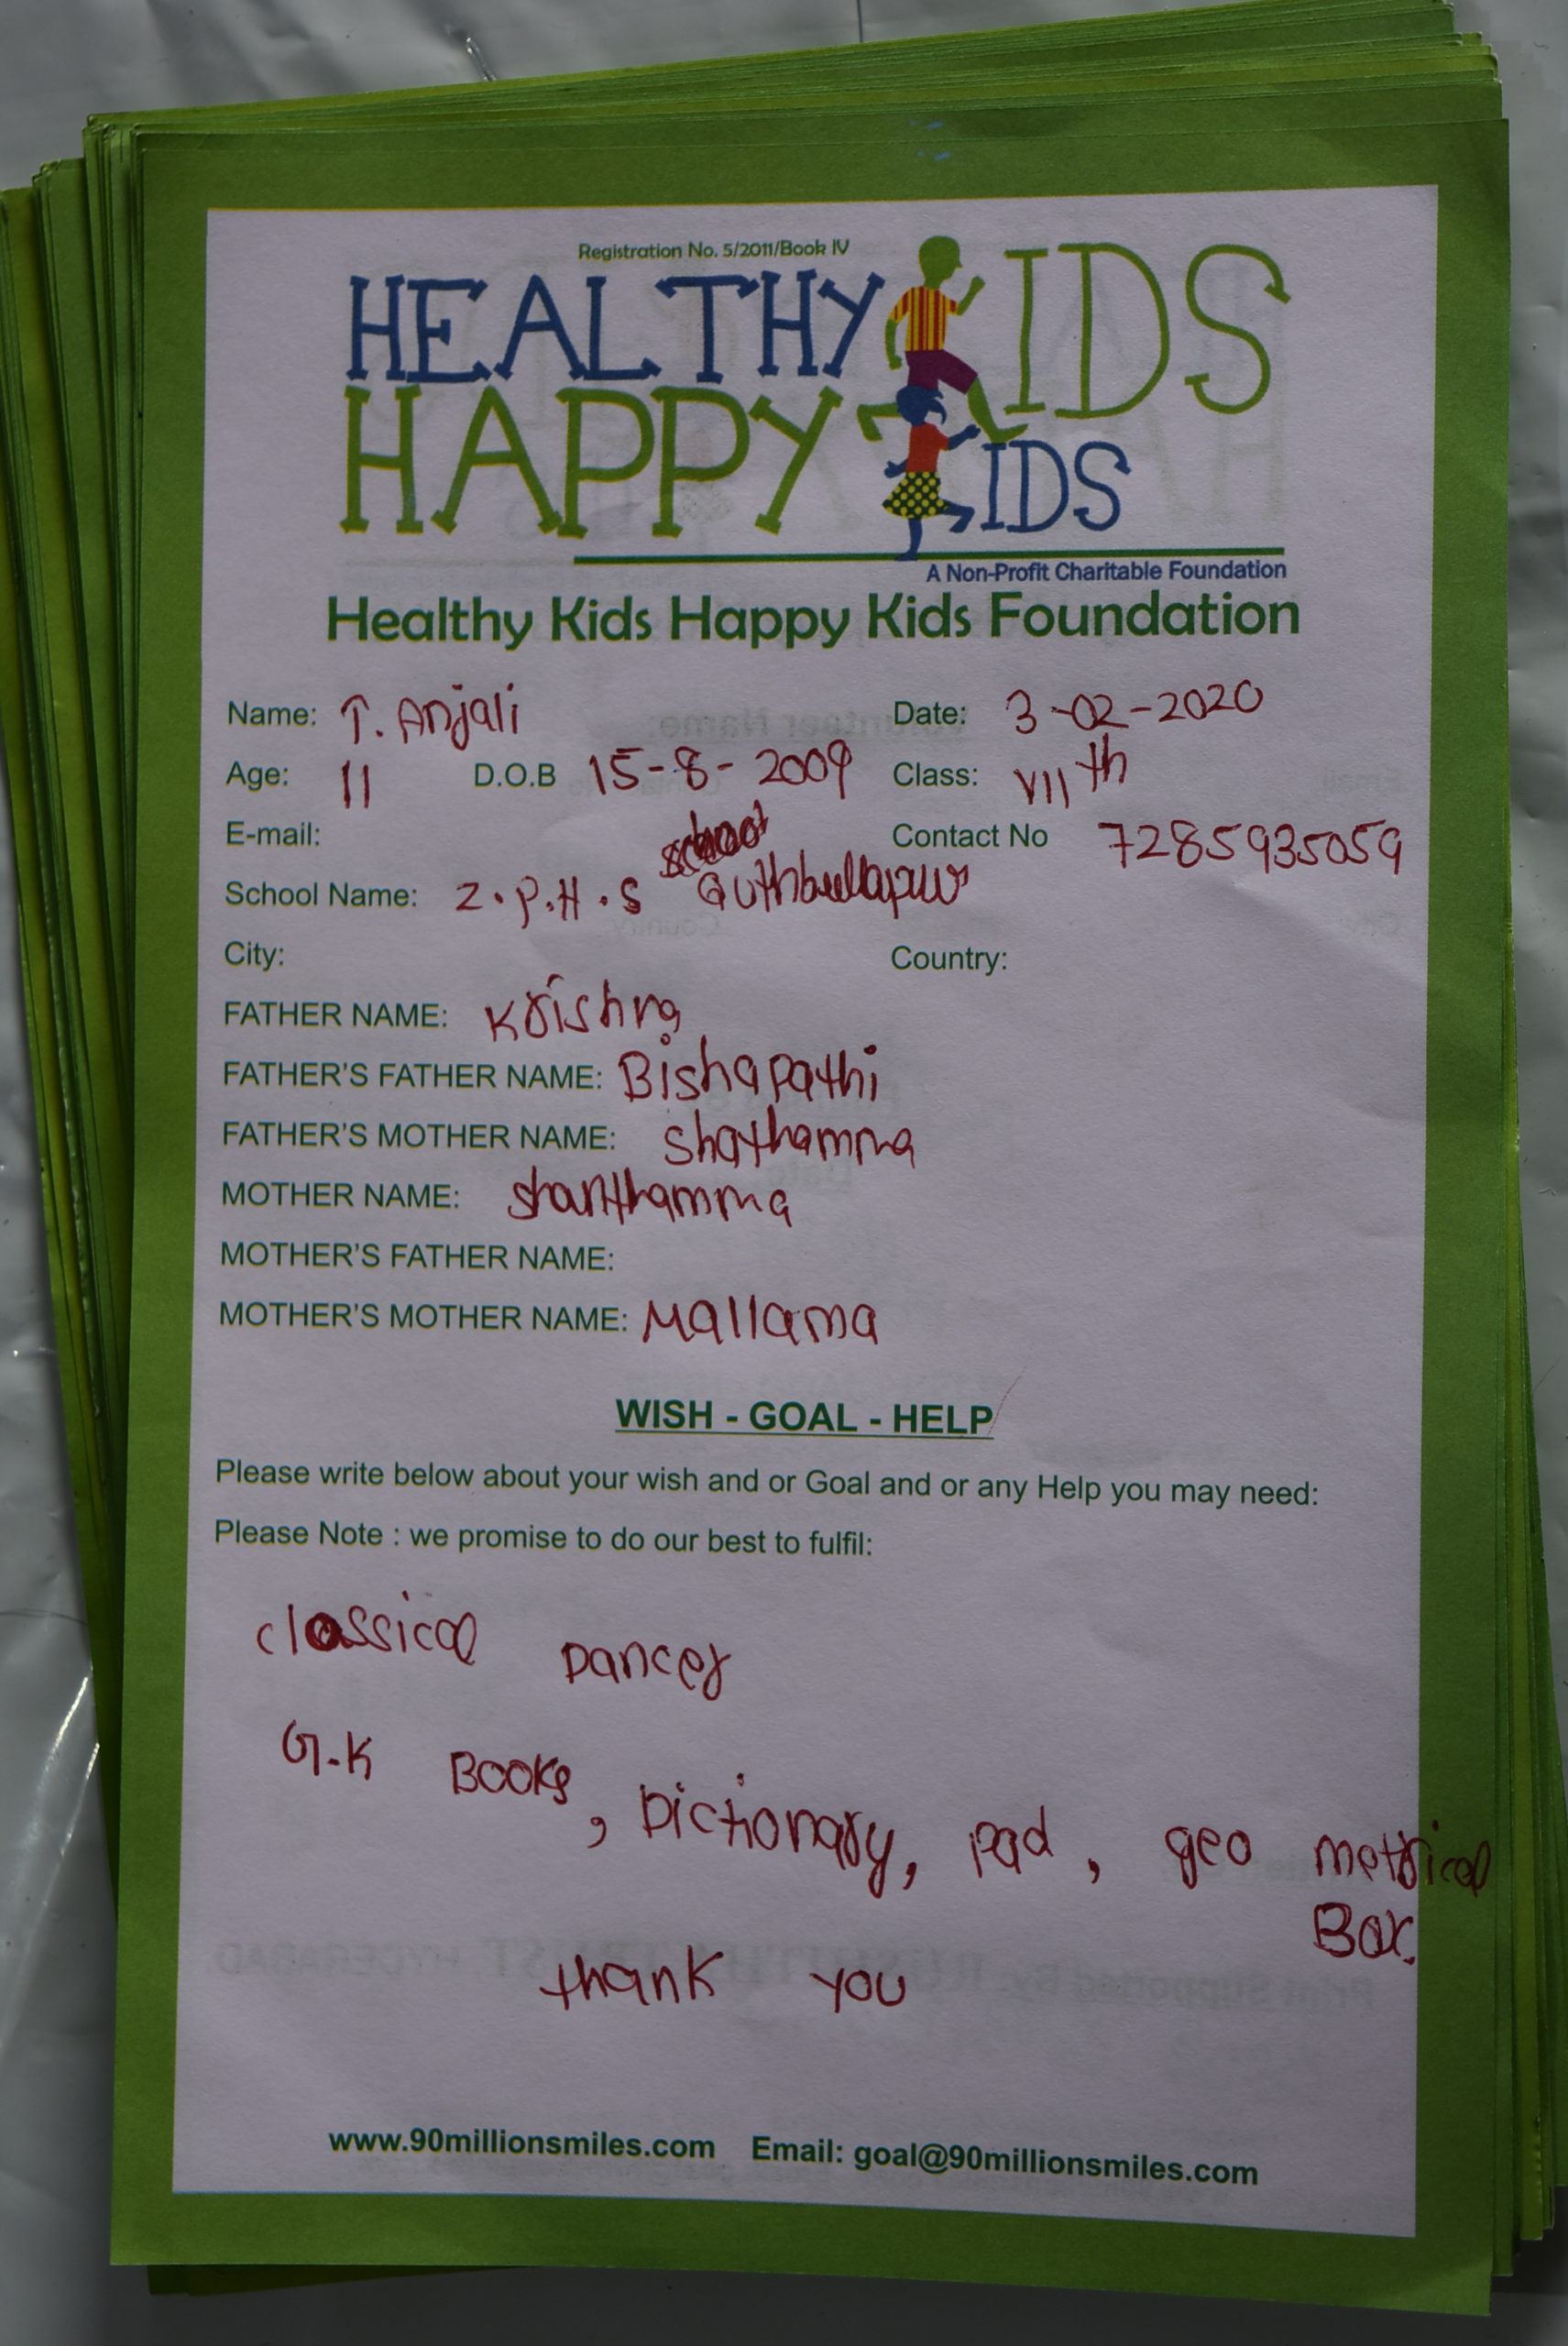 Registration No. 5/2011/Book IV
HEALTHY KIDS
HAPPY KIDS
A Non-Profit Charitable Foundation
Healthy Kids Happy Kids Foundation
Name: T. Anjali Date: 3-02-2020
Age: 11 D.O.B 15-8-2009 Class: VIIth
E-mail: Contact No 7285935059
School Name: Z.P.H.S Quthbullapur
City: Country:
FATHER NAME: Krishna
FATHER'S FATHER NAME: Bishapathi
FATHER'S MOTHER NAME: Shathamma
MOTHER NAME: Shanthamma
MOTHER'S FATHER NAME:
MOTHER'S MOTHER NAME: Mallama
WISH - GOAL - HELP
Please write below about your wish and or Goal and or any Help you may need:
Please Note : we promise to do our best to fulfil:
classical Dancer
G.K Books, Dictionary, pad, geo metrical
Box.
thank you
www.90millionsmiles.com Email: goal@90millionsmiles.com